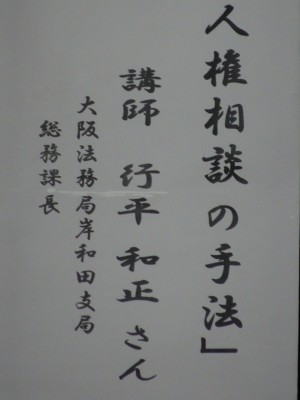 人権相談の手法」
講師 行平和正さん
大阪法務局岸和田支局
総務課長